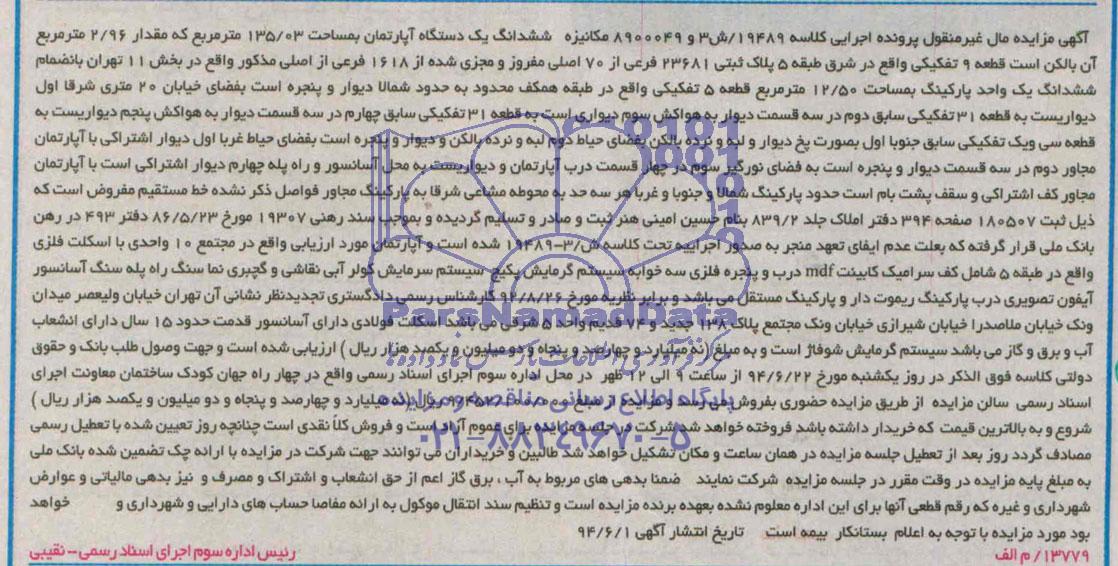 آگهی مزایده مال غیرمنقول پرونده اجرایی کلاسه ۱۹۴۸۹/ش۳ و ۸۹۰۰۰۴۹ مکانیزه ششدانگ یک دستگاه آپارتمان بمساحت ۱۳۵/۰۳ مترمربع که مقدار ۲/۹۶ مترمربع
آن بالکن است قطعه ۹ تفکیکی واقع در شرق طبقه ۵ پلاک ثبتی ۲۳۶۸۱ فرعی از ۷۰ اصلی مفروز و مجزی شده از ۱۶۱۸ فرعی از اصلی مذکور واقع در بخش ۱۱ تهران بانضمام
ششدانگ یک واحد پارکینگ بمساحت ۱۲/۵۰ مترمربع قطعه ۵ تفکیکی واقع در طبقه همکف محدود به حدود شمالا دیوار و پنجره است بفضای خیابان ۲۰ متری شرقا اول
دیواریست به قطعه ۳۱ تفکیکی سابق دوم در سه قسمت دیوار به هواکش سوم دیواری است به قطعه ۳۱ تفکیکی سابق چهارم در سه قسمت دیوار به هواکش پنجم دیواریست به
قطعه سی ویک تفکیکی سابق جنوبا اول بصورت پخ دیوار و لبه و نرده بالکن بفضای حیاط دوم لبه و نرده بالکن و دیوار و پنجره است بفضای حیاط غربا اول دیوار اشتراکی با آپارتمان
مجاور دوم در سه قسمت دیوار و پنجره است به فضای نورگیر سوم در چهار قسمت درب آپارتمان و دیواریست به محل آسانسور و راه پله چهارم دیوار اشتراکی است با آپارتمان
مجاور کف اشتراکی و سقف پشت بام است حدود پارکینگ شمالا و جنوبا و غربا هر سه حد به محوطه مشاعی شرقا به پارکینگ مجاور فواصل ذکر نشده خط مستقیم مفروض است که
ذیل ثبت ۱۸۰۵۰۷ صفحه ۳۹۴ دفتر املاک جلد ۸۳۹/۲ بنام حسین امینی هنر ثبت و صادر و تسلیم گردیده و بموجب سند رهنی ۱۹۳۰۷ مورخ ۸۶/۵/۲۳ دفتر ۴۹۳ در رهن
بانک ملی قرار گرفته که بعلت عدم ایفای تعهد منجر به صدور اجراییه تحت کلاسه ش/۳-۱۹۴۸۹ شده است و آپارتمان مورد ارزیابی واقع در مجتمع ۱۰ واحدی با اسکلت فلزی
واقع در طبقه ۵ شامل کف سرامیک کابینت mdf درب و پنجره فلزی سه خوابه سیستم گرمایش پکیج سیستم سرمایش کولر آبی نقاشی و گچبری نما سنگ راه پله سنگ آسانسور
آیفون تصویری درب پارکینگ ریموت دار و پارکینگ مستقل می باشد و برابر نظریه مورخ ۹۲/۸/۲۶ کارشناس رسمی دادگستری تجدیدنظر نشانی آن تهران خیابان ولیعصر میدان
ونک خیابان ملاصدرا خیابان شیرازی خیابان ونک مجتمع پلاک ۱۳۸ جدید و ۷۴ قدیم واحد ۵ شرقی می باشد اسکلت فولادی دارای آسانسور قدمت حدود ۱۵ سال دارای انشعاب
آب و برق و گاز می باشد سیستم گرمایش شوفاژ است و به مبلغ (نه میلیارد و چهارصد و پنجاه و دو میلیون و یکصد هزار ریال ) ارزیابی شده است و جهت وصول طلب بانک و حقوق
دولتی کلاسه فوق الذکر در روز یکشنبه مورخ ۹۴/۶/۲۲ از ساعت ۹ الی ۱۲ ظهر در محل اداره سوم اجرای اسناد رسمی واقع در چهار راه جهان کودک ساختمان معاونت اجرای
اسناد رسمی سالن مزایده از طریق مزایده حضوری بفروش می رسد و مزایده از مبلغ ریال (نه میلیارد و چهارصد و پنجاه و دو میلیون و یکصد هزار ریال )
شروع و به بالاترین قیمت که خریدار داشته باشد فروخته خواهد شد شرکت در جلسه مزایده برای عموم آزاد است و فروش کلاً نقدی است چنانچه روز تعیین شده با تعطیل رسمی
مصادف گردد روز بعد از تعطیل جلسه مزایده در همان ساعت و مکان تشکیل خواهد شد طالبین و خریداران می توانند جهت شرکت در مزایده با ارائه چک تضمین شده بانک ملی
به مبلغ پایه مزایده در وقت مقرر در جلسه مزایده شرکت نمایند ضمنا بدهی های مربوط به آب ، برق گاز اعم از حق انشعاب و اشتراک و مصرف و نیز بدهی مالیاتی و عوارض
شهرداری و غیره که رقم قطعی آنها برای این اداره معلوم نشده بعهده برنده مزایده است و تنظیم سند انتقال موکول به ارائه مفاصا حساب های دارایی و شهرداری و خواهد
بود مورد مزایده با توجه به اعلام بستانکار بیمه است تاریخ انتشار آگهی ۹۴/۶/۱
۱۳۷۷۹/ م الف رئیس اداره سوم اجرای اسناد رسمی – نقیبی
ParsNamadData
پایگاه اطلاع رسانی مناقصه و مزایده
۰۲۱-۸۸۳۴۹۶۷۰-۵